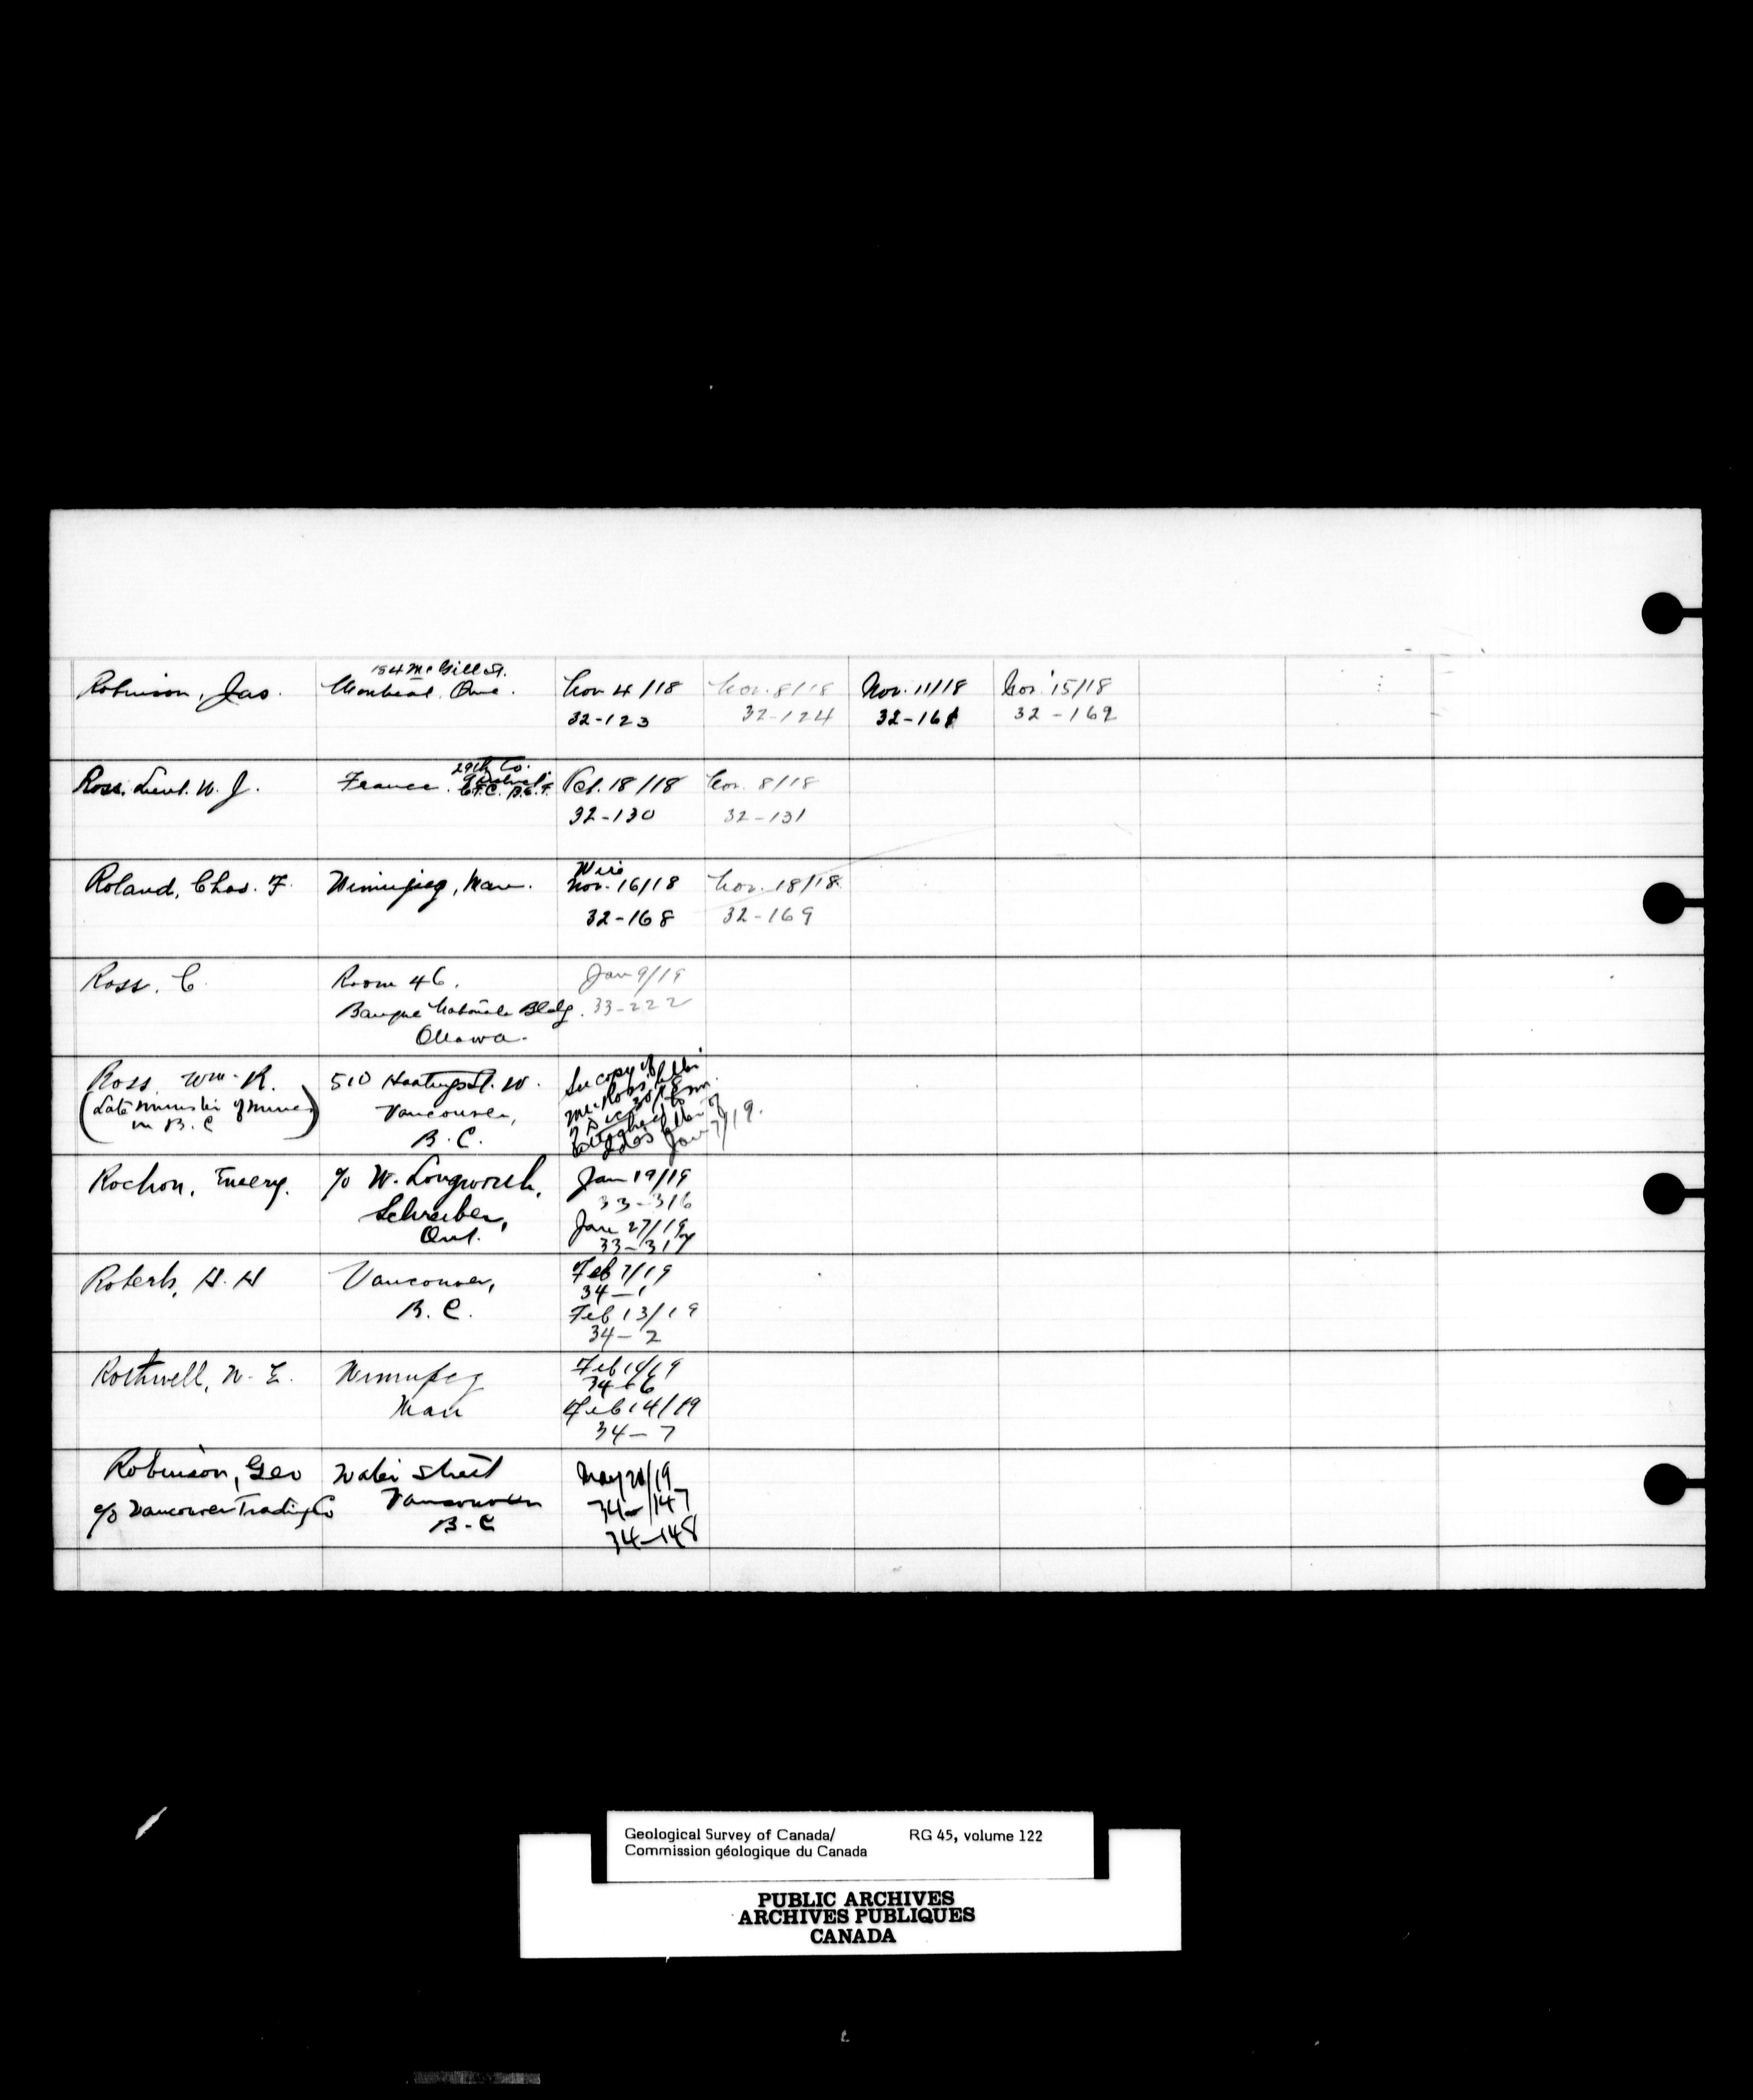 Robinson, Jas.
154 McGill St.
Montreal, Que.
Nov 4/18
32-123
Nov. 8/18
32-124
Nov. 11/18
32-161
Nov. 15/18
32-162
Ross, Lieut. W. J.
France.
29th Co.
C.F.C. B.E.F.
Oct. 18/18
32-130
Nov. 8/18
32-131
Roland, Chas. F.
Winnipeg, Man.
Wire
Nov. 16/18
32-168
Nov. 18/18
32-169
Ross. C
Room 46.
Banque Nationale Bldg.
Ottawa.
Jan 9/19
33-222
Ross, Wm. R.
(Late Minister of Mines
in B.C)
510 Hastings St. W.
Vancouver,
B.C.
See copy of
Mr. Ross' letter
of Dec 30/18
attached to Mr.
letter of
Jan 7/19.
Rochon, Emery.
c/o W. Longworth,
Schreiber,
Ont.
Jan 19/19
33-316
Jan 27/19
33-317
Roberts, H. H
Vancouver,
B.C.
Feb 7/19
34-1
Feb 13/19
34-2
Rothwell, W. E.
Winnipeg
Man
Feb 14/19
34-6
Feb 14/19
34-7
Robinson, Geo
c/o Vancouver Trading Co
Water Street
Vancouver
B-C
May 20/19
34-147
34-148
Geological Survey of Canada/ RG 45, volume 122
Commission géologique du Canada
PUBLIC ARCHIVES
ARCHIVES PUBLIQUES
CANADA